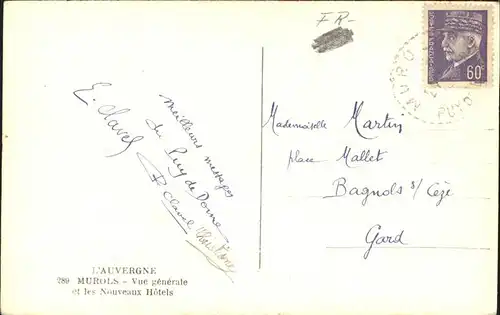 FR-
60c
MUROLS
PUY-D
Meilleurs messages
du Puy de Dome
P Clavel
E. Clavel
Mademoiselle Martin
place Mallet
Bagnols s/ Cèze
Gard
L'AUVERGNE
289 MUROLS - Vue générale
et les Nouveaux Hôtels